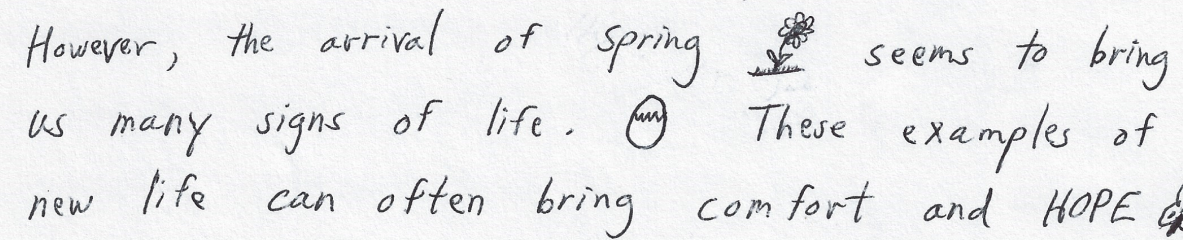 However, the arrival of Spring seems to bring
us many signs of life. These examples of
new life can often bring comfort and HOPE